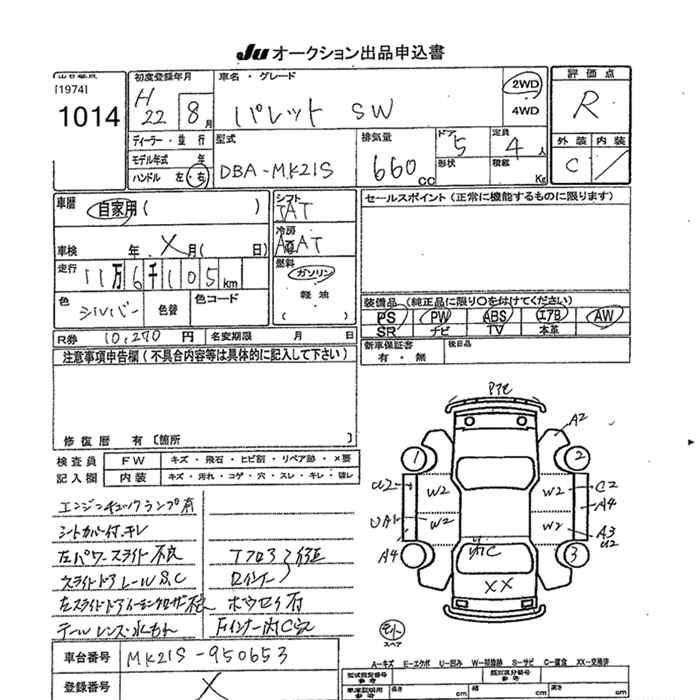 JU オークション出品申込書
[1974]
1014
初度登録年月
H 22 8 月
車名・グレード
パレット SW
2WD
4WD
評価点
R
外装 内装
C /
ディーラー・並行
モデル年式 年
ハンドル 左・右
型式
DBA-MK21S
排気量
660 CC
ドア 5
形状
定員 4 人
積載 Kg
車歴 自家用 ( )
シフト
IAT
冷房
AAT
燃料
ガソリン
軽油
( )
セールスポイント (正常に機能するものに限ります)
車検 年 X 月 ( 日)
走行 11万6千105 km
色 シルバー 色替 色コード
R券 10,270 円 名変期限 月 日
装備品 (純正品に限り○を付けてください)
PS PW ABS エアB AW
SR ナビ TV 本革
新車保証書 有・無 後日品
注意事項申告欄 (不具合内容等は具体的に記入して下さい)
修復歴 有 [箇所 ]
検査員 FW キズ・飛石・ヒビ割・リペア跡・×要
記入欄 内装 キズ・汚れ・コゲ・穴・スレ・キレ・破レ
エンジンチェックランプ有
シートカバー付.キレ
左パワースライド不良
スライドドアレールS,C
テールレンズ・水もれ
A2
1 2
U2 W2 W2 C2
A4
UA1 W2 W2 A3
U2
A4 3
C
XX
スペア
A-キズ E-エクボ U-凹み W-補修跡 S-サビ C-腐食 XX-交換済
車台番号 MK21S-950653
登録番号 X
長さ cm 幅 cm 高さ cm